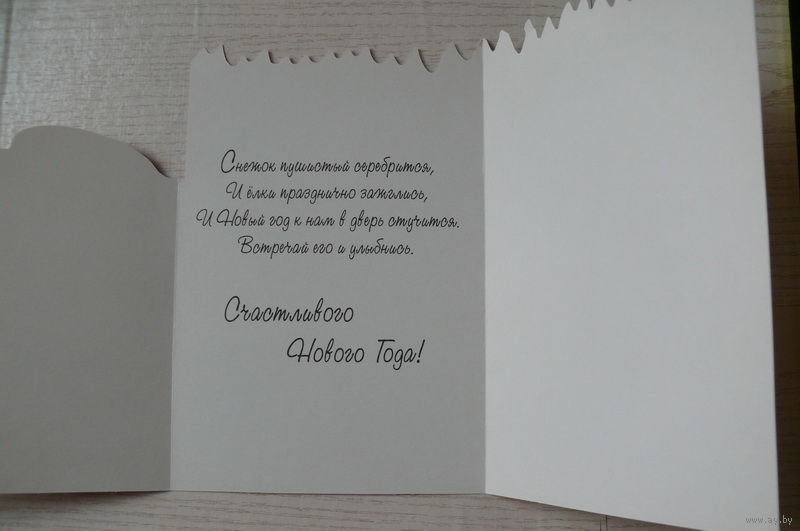 Снежок пушистый серебрится,
И ёлки празднично зажглись,
И Новый год к нам в дверь стучится.
Встречай его и улыбнись.
Счастливого
Нового Года!
www.ay.by